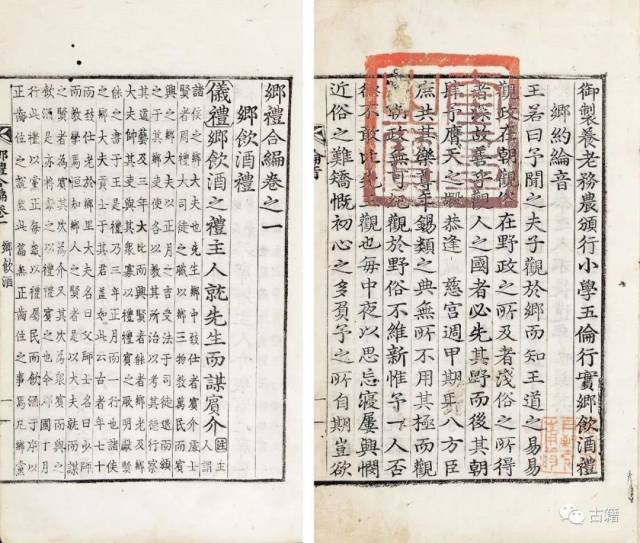 御製養老務農頒行小學五倫行實鄕飮酒禮
鄕約綸音
王若曰予聞之夫子觀於鄕而知王道之易易
觀政在朝觀俗在野政之所及者淺俗之所得
者深故善乎觀人之國者必先其野而後其朝
肆予膺天之嘏恭逢 慈宮週甲期年八方臣
庶共其樂尊年錫類之典無所不用其極而觀
朝政無可紀觀於野俗不維新惟予一人否
德不敢比先王觀也每中夜以思忘寢屢興憫
近俗之難矯慨初心之多負予之所自期豈欲
鄕禮合編卷之一
鄕飮酒禮
儀禮鄕飮酒之禮主人就先生而謀賓介註主人謂
諸侯之鄕大夫也先生鄕中致仕者賓介處士
賢者周禮大司徒之職以鄕三物敎萬民而賓
興之鄕大夫以正月吉受法于司徒退而頒
之于其鄕吏使各以敎其所治以考其德行察
其道藝及三年大比而興賢者能者鄕老及鄕
大夫帥其吏與其衆寡以禮禮賓之厥明獻賢
能之書于王是禮乃三年正月而一行也諸侯
之鄕大夫貢士于其君蓋如此云古者年七十
而致仕老於鄕里大夫名曰父師士名曰少師
而敎學焉恒知鄕人之賢者是以大夫就而謀
之賢者爲賓其次爲介又其次爲衆賓而與之
飮酒是亦將獻之以禮禮賓之也今郡國十月
行此禮以黨正每歲以禮屬民而飮酒于序以
正齒位之說然此篇無正齒位之事焉凡鄕黨
鄕禮合編卷一 鄕飮酒 一
古籍